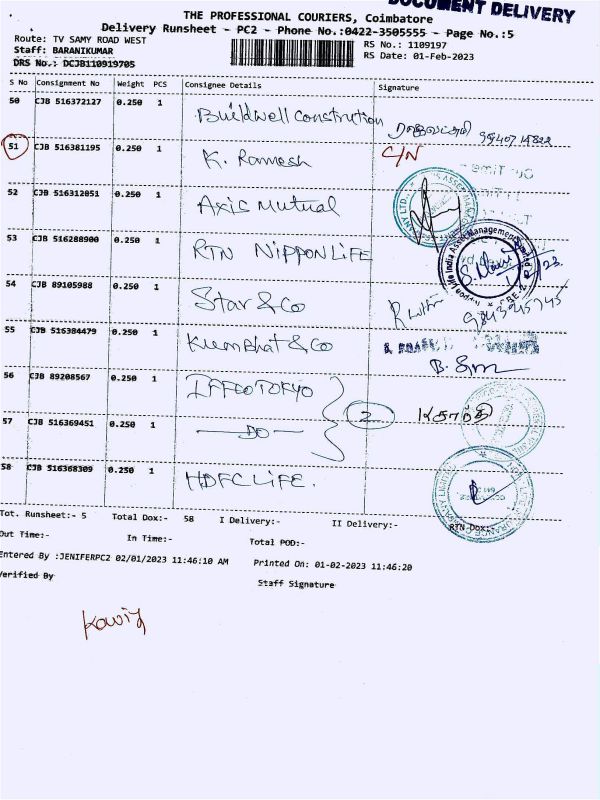 DOCUMENT DELIVERY
THE PROFESSIONAL COURIERS, Coimbatore
Delivery Runsheet - PC2 - Phone No.:0422-3505555 - Page No.:5
Route: TV SAMY ROAD WEST RS No.: 1109197
Staff: BARANIKUMAR RS Date: 01-Feb-2023
DRS No.: DCJB110919705
S No Consignment No Weight PCS Consignee Details Signature
50 CJB 516372127 0.250 1 Buildwell Constrution
51 CJB 516381195 0.250 1 K. Ramesh C/N
52 CJB 516312051 0.250 1 Axis Mutual
53 CJB 516288900 0.250 1 RTN NIPPON LIFE
54 CJB 89105988 0.250 1 Star & Co 9843945745
55 CJB 516384479 0.250 1 Kumbhat & Co
56 CJB 89208567 0.250 1 IFFCO TOKYO
2
57 CJB 516369451 0.250 1 DO
58 CJB 516368309 0.250 1 HDFC LIFE.
Tot. Runsheet:- 5 Total Dox:- 58 I Delivery:- II Delivery:- RTN Dox:-
Out Time:- In Time:- Total POD:-
Entered By :JENIFERPC2 02/01/2023 11:46:10 AM Printed On: 01-02-2023 11:46:20
Verified By Staff Signature